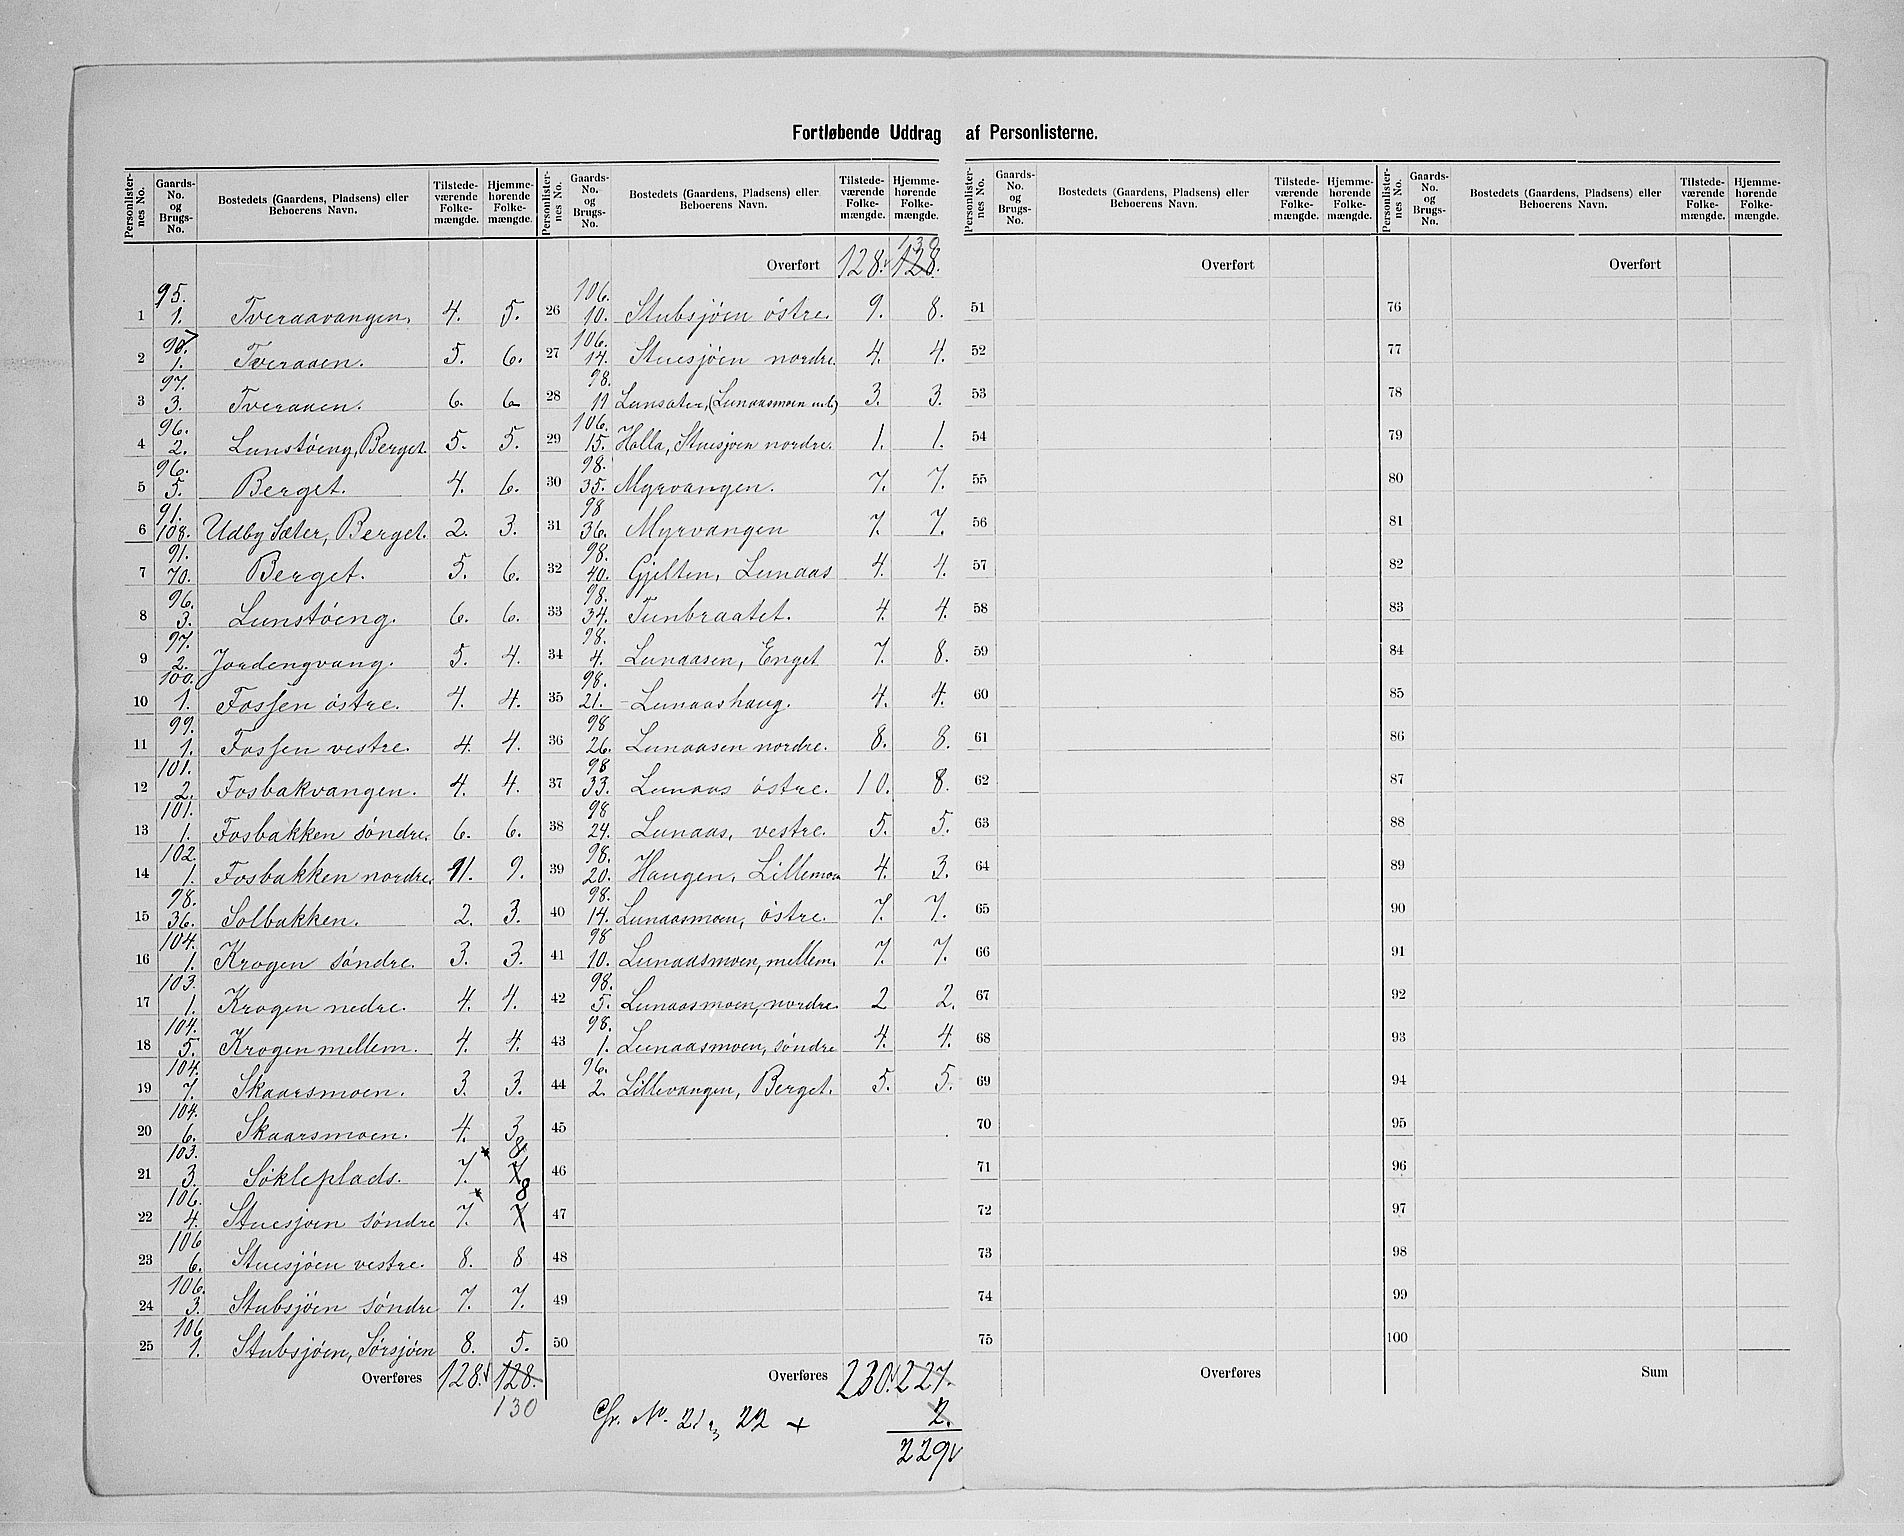 Fortløbende Uddrag af Personlisterne.
Personlister-nes No. | Gaards-No. og Brugs-No. | Bostedets (Gaardens, Pladsens) eller Beboerens Navn. | Tilstede-værende Folke-mængde. | Hjemme-hørende Folke-mængde.
1 | 95. 1. | Tveraavangen. | 4. | 5.
2 | 97. 1. | Tveraaen. | 5. | 6.
3 | 97. 3. | Tveraaen. | 6. | 6
4 | 96. 2. | Lunstøeng, Berget. | 5. | 5.
5 | 96. 5. | Berget. | 4. | 6.
6 | 91. 108. | Udby Sæter, Berget. | 2. | 3.
7 | 91. 70. | Berget. | 5. | 6.
8 | 96. 3. | Lunstøeng. | 6. | 6.
9 | 97. 2. | Jordengvang. | 5. | 4.
10 | 100. 1. | Fossen østre. | 4. | 4.
11 | 99. 1. | Fossen vestre. | 4. | 4.
12 | 101. 2. | Fosbakvangen. | 4. | 4.
13 | 101. 1. | Fosbakken søndre. | 6. | 6.
14 | 102. 1. | Fosbakken nordre. | 11. | 9.
15 | 98. 36. | Solbakken. | 2. | 3.
16 | 104. 1. | Krogen søndre. | 3. | 3.
17 | 103. 1. | Krogen nedre. | 4. | 4.
18 | 104. 5. | Krogen mellem. | 4. | 4.
19 | 104. 7. | Skaarsmoen. | 3. | 3.
20 | 104. 6. | Skaarsmoen. | 4. | 3
21 | 103. 3. | Søkleplads. | 7. × | 7 8
22 | 106. 4. | Stuesjøen søndre | 7. × | 7 8
23 | 106 6. | Stuesjøen vestre. | 8. | 8
24 | 106. 3. | Stubsjøen søndre | 7. | 7.
25 | 106 1. | Stubsjøen, Sørsjøen | 8. | 5.
Overføres 128. 128. 130
Personlister-nes No. | Gaards-No. og Brugs-No. | Bostedets (Gaardens, Pladsens) eller Beboerens Navn. | Tilstede-værende Folke-mængde. | Hjemme-hørende Folke-mængde.
Overført 128. 128. 130
26 | 106. 10. | Stubsjøen østre. | 9. | 8.
27 | 106. 14. | Stuesjøen nordre. | 4. | 4.
28 | 98. 11 | Lunsæter, (Lunaasmoen | 3. | 3.
29 | 106. 15. | Holla, Stuesjøen nordre. | 1. | 1.
30 | 98. 35. | Myrvangen. | 7. | 7.
31 | 98 36. | Myrvangen | 7. | 7.
32 | 98. 40. | Gjelten, Lunaas | 4. | 4.
33 | 98. 34. | Tunbraatet. | 4. | 4.
34 | 98. 4. | Lunaasen, Enget | 7. | 8.
35 | 98. 21. | Lunaashaug. | 4. | 4.
36 | 98 26. | Lunaasen nordre. | 8. | 8.
37 | 98 33. | Lunaas østre. | 10. | 8.
38 | 98 24. | Lunaas, vestre. | 5. | 5.
39 | 98. 20. | Haugen, Lillemoen | 4. | 3.
40 | 98. 14. | Lunaasmoen, østre. | 7. | 7.
41 | 98 10. | Lunaasmoen, mellem. | 7. | 7.
42 | 98. 5. | Lunaasmoen, nordre. | 2 | 2.
43 | 98. 1. | Lunaasmoen, søndre | 4. | 4.
44 | 96. 2. | Lillevangen, Berget. | 5. | 5.
45
46
47
48
49
50
Overføres 230. 227.
Cfr. No. 21 og 22 + 2.
229
Personlister-nes No. | Gaards-No. og Brugs-No. | Bostedets (Gaardens, Pladsens) eller Beboerens Navn. | Tilstede-værende Folke-mængde. | Hjemme-hørende Folke-mængde.
Overført
51
52
53
54
55
56
57
58
59
60
61
62
63
64
65
66
67
68
69
70
71
72
73
74
75
Overføres
Personlister-nes No. | Gaards-No. og Brugs-No. | Bostedets (Gaardens, Pladsens) eller Beboerens Navn. | Tilstede-værende Folke-mængde. | Hjemme-hørende Folke-mængde.
Overført
76
77
78
79
80
81
82
83
84
85
86
87
88
89
90
91
92
93
94
95
96
97
98
99
100
Sum